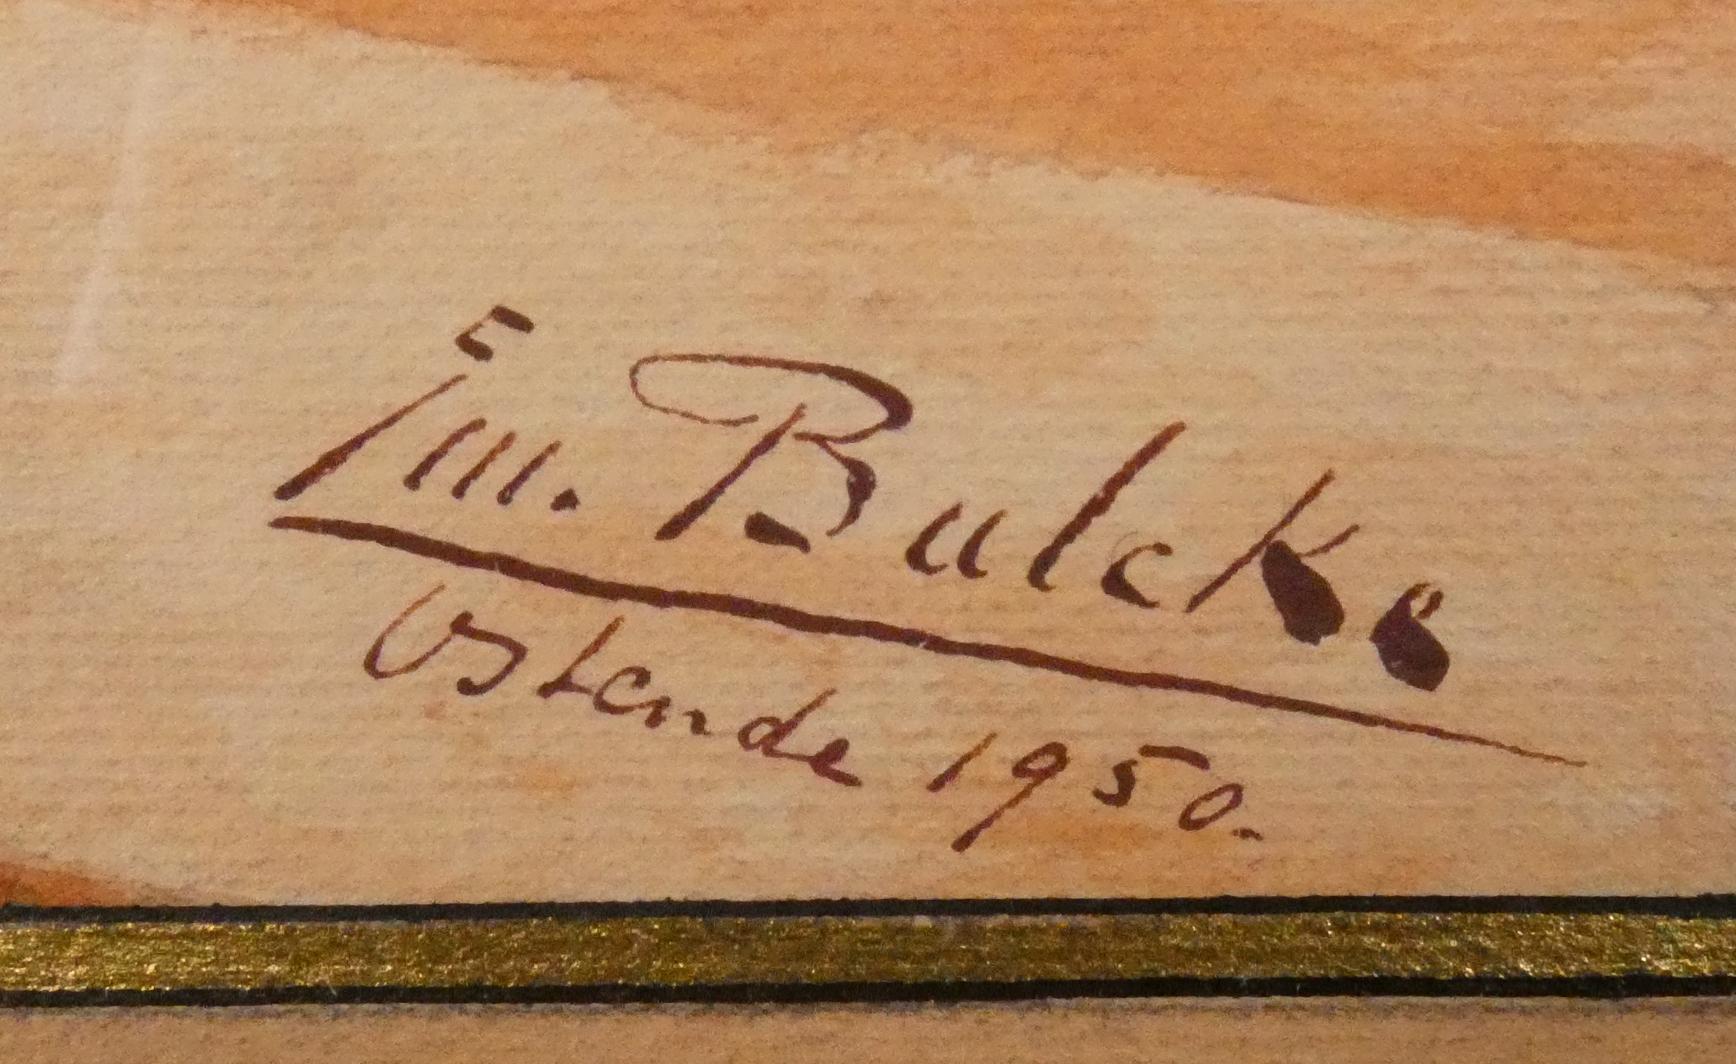 Em. Bulcke
Ostende 1950.